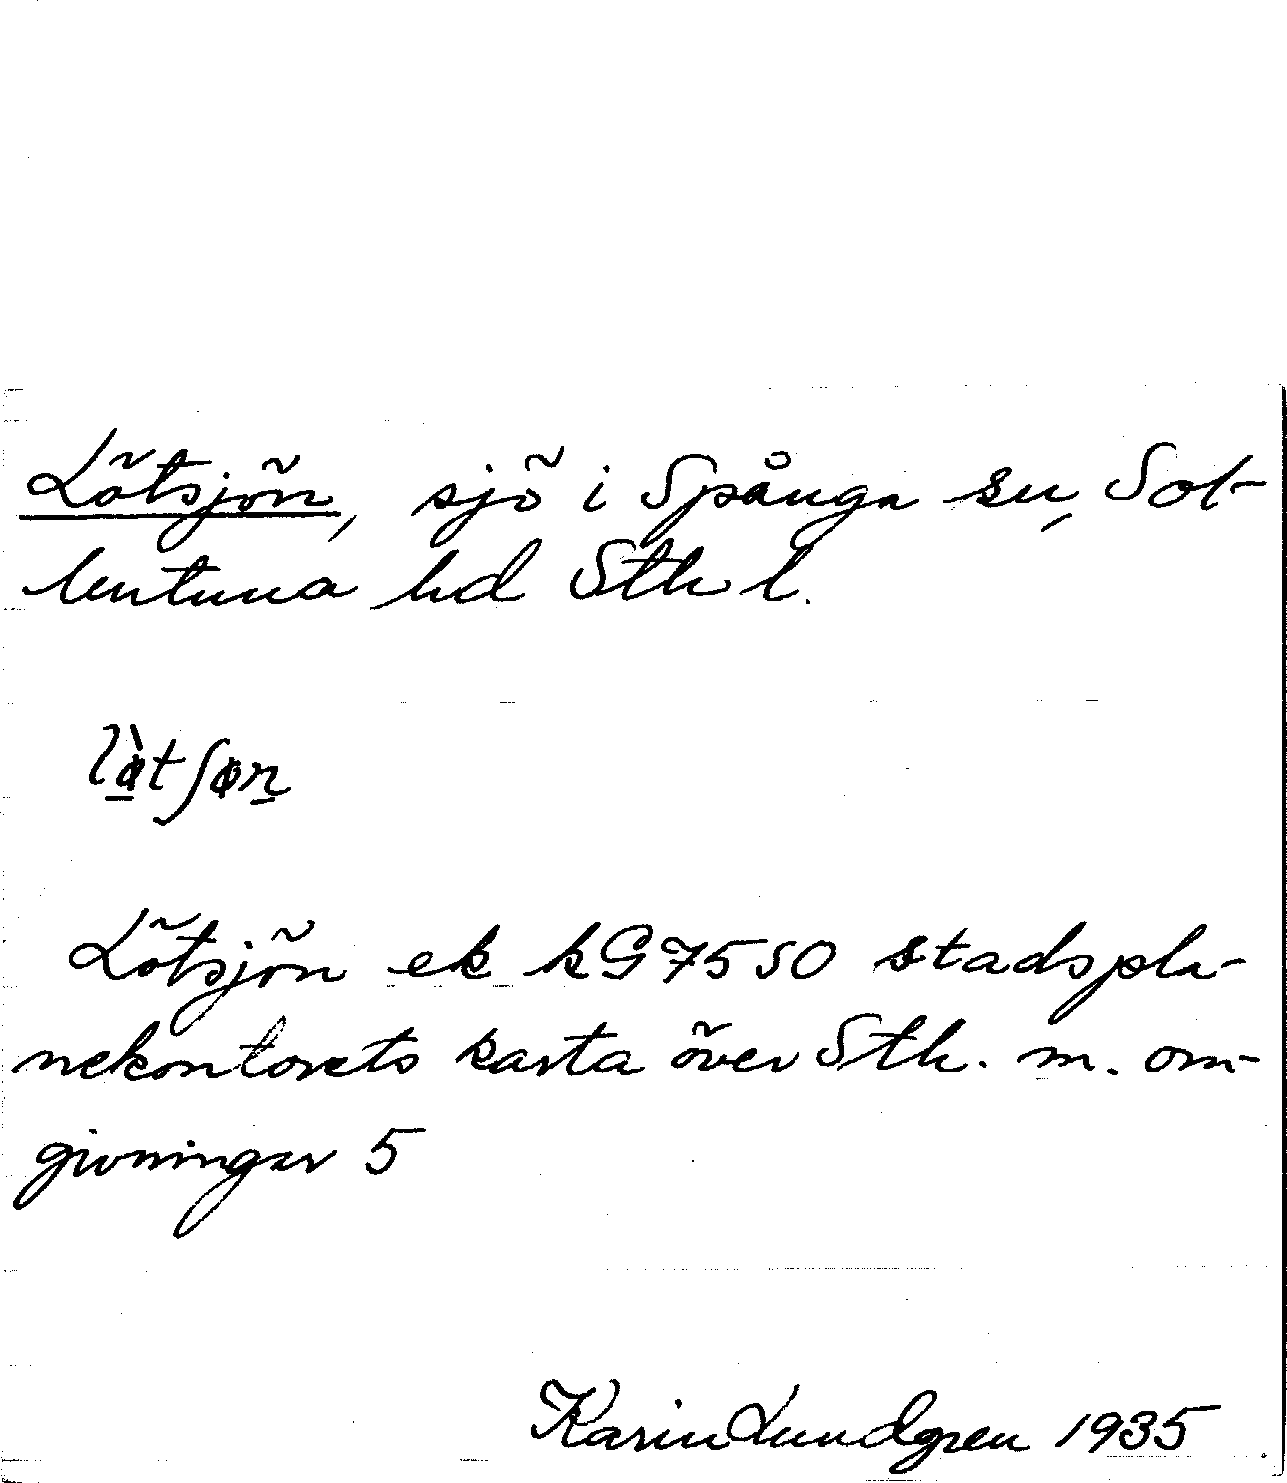 Lötsjön, sjö i Spånga sn, Sol-
lentuna hd Sth l.
Lötsjön ek kG7550 stadspla-
nekontorets karta över Sth. m. om-
givningar 5
Karin Lundgren 1935